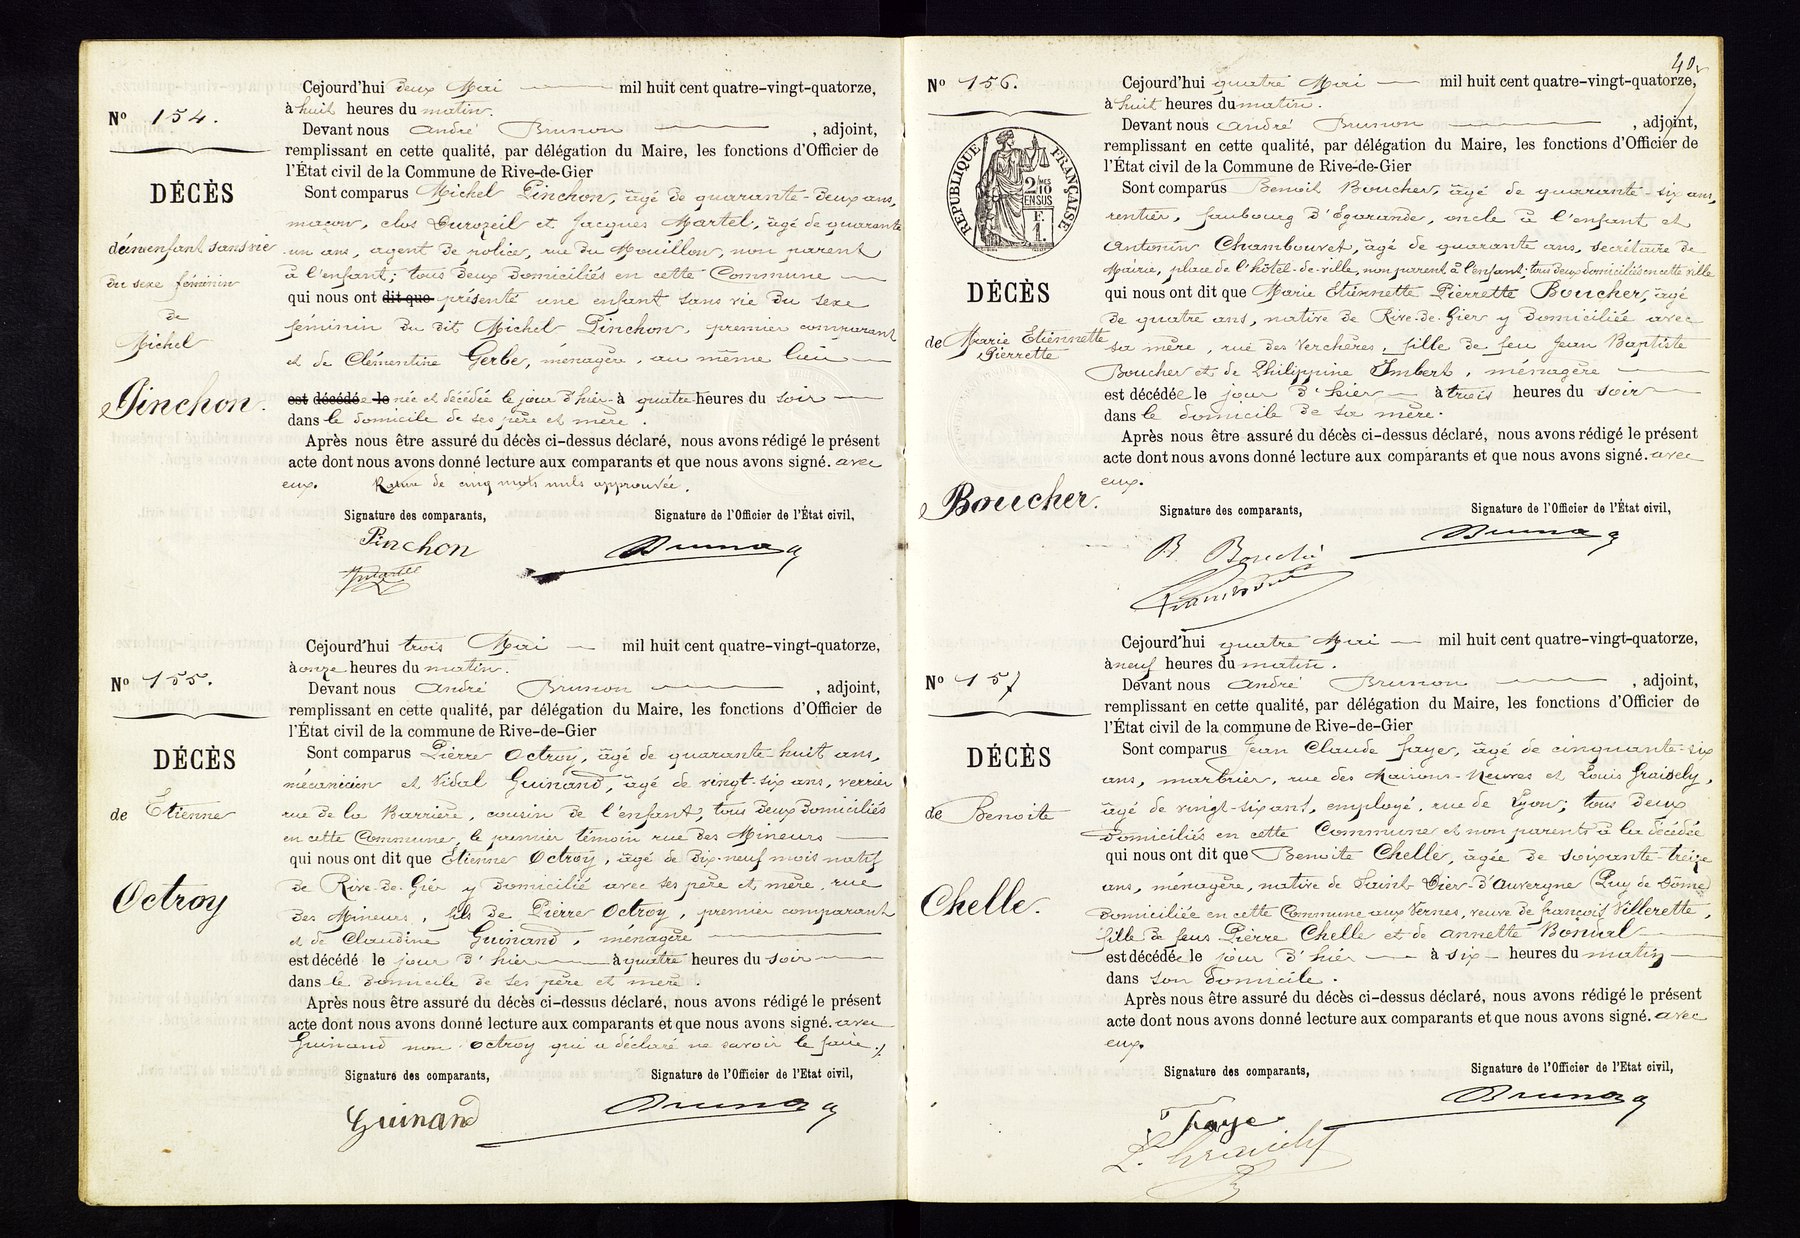 Nº 154.
DÉCÈS
d'un enfant sans vie
du sexe féminin
de
Michel
Pinchon.
Cejourd'hui deux Mai mil huit cent quatre-vingt-quatorze,
à huit heures du matin.
Devant nous André Brunon, adjoint,
remplissant en cette qualité, par délégation du Maire, les fonctions d'Officier de
l'État civil de la Commune de Rive-de-Gier
Sont comparus Michel Pinchon, âgé de quarante-deux ans,
maçon, clos et Jacques Martel, âgé de quarante
un ans, agent de police, rue du Mouillon, non parent
à l'enfant; tous deux domiciliés en cette Commune
qui nous ont dit que présenté une enfant sans vie du sexe
féminin du dit Michel Pinchon, premier comparant
et de Clémentine Gerbe, ménagère, au même lieu
est décédée le née et décédée le jour d'hier à quatre heures du soir
dans le domicile de ses père et mère.
Après nous être assuré du décès ci-dessus déclaré, nous avons rédigé le présent
acte dont nous avons donné lecture aux comparants et que nous avons signé. avec
eux. Rature de cinq mots nuls approuvée.
Signature des comparants, Signature de l'Officier de l'État civil,
Pinchon Brunon
Martel
Nº 155.
DÉCÈS
de Etienne
Octroy
Cejourd'hui trois Mai mil huit cent quatre-vingt-quatorze,
à onze heures du matin.
Devant nous André Brunon, adjoint,
remplissant en cette qualité, par délégation du Maire, les fonctions d'Officier de
l'État civil de la commune de Rive-de-Gier
Sont comparus Pierre Octroy, âgé de quarante-huit ans,
mécanicien et Vidal Guinand, âgé de vingt-six ans, verrier
rue de la Barrière, cousin de l'enfant; tous deux domiciliés
en cette Commune, le premier témoin rue des Mineurs
qui nous ont dit que Etienne Octroy, âgé de dix-neuf mois natif
de Rive-de-Gier y domicilié avec ses père et mère, rue
des Mineurs, fils de Pierre Octroy, premier comparant
et de Claudine Guinand, ménagère
est décédé le jour d'hier à quatre heures du soir
dans le domicile de ses père et mère.
Après nous être assuré du décès ci-dessus déclaré, nous avons rédigé le présent
acte dont nous avons donné lecture aux comparants et que nous avons signé. avec
Guinand non Octroy qui a déclaré ne savoir le faire./
Signature des comparants, Signature de l'Officier de l'Etat civil,
Guinand Brunon
40
Nº 156.
RÉPUBLIQUE FRANÇAISE
2/10MES
EN SUS
F.
1.
DÉCÈS
de Marie Etiennette
Pierrette
Boucher.
Cejourd'hui quatre Mai mil huit cent quatre-vingt-quatorze,
à huit heures du matin.
Devant nous André Brunon, adjoint,
remplissant en cette qualité, par délégation du Maire, les fonctions d'Officier de
l'État civil de la Commune de Rive-de-Gier
Sont comparus Benoit Boucher, âgé de quarante-six ans,
rentier, faubourg d'Egarande, oncle à l'enfant et
Antonin Chambouvet, âgé de quarante ans, secrétaire de
Mairie, place de l'hôtel-de-ville, non parent à l'enfant; tous deux domiciliés en cette ville
qui nous ont dit que Marie Etiennette Pierrette Boucher, âgé
de quatre ans, native de Rive-de-Gier y domiciliée avec
sa mère, rue des Verchères, fille de feu Jean Baptiste
Boucher et de Philippine Imbert, ménagère
est décédée le jour d'hier à trois heures du soir
dans le domicile de sa mère.
Après nous être assuré du décès ci-dessus déclaré, nous avons rédigé le présent
acte dont nous avons donné lecture aux comparants et que nous avons signé. avec
eux.
Signature des comparants, Signature de l'Officier de l'Etat civil,
B. Bouché Brunon
Nº 157
DÉCÈS
de Benoite
Chelle.
Cejourd'hui quatre Mai mil huit cent quatre-vingt-quatorze,
à neuf heures du matin.
Devant nous André Brunon, adjoint,
remplissant en cette qualité, par délégation du Maire, les fonctions d'Officier de
l'État civil de la commune de Rive-de-Gier
Sont comparus Jean Claude Faye, âgé de cinquante-six
ans, marbrier, rue des Maisons-Neuves et Louis Graisely,
âgé de vingt-six ans, employé, rue de Lyon; tous deux
domiciliés en cette Commune et non parents à la décédée
qui nous ont dit que Benoite Chelle, âgée de soixante-treize
ans, ménagère, native de Saint-Dier-d'Auvergne (Puy de Dôme)
domiciliée en cette Commune aux Vernes, veuve de françois Villerette,
fille de feus Pierre Chelle et de Annette Bondal
est décédée le jour d'hier à six heures du matin
dans son domicile.
Après nous être assuré du décès ci-dessus déclaré, nous avons rédigé le présent
acte dont nous avons donné lecture aux comparants et que nous avons signé. avec
eux.
Signature des comparants, Signature de l'Officier de l'Etat civil,
Faye Brunon